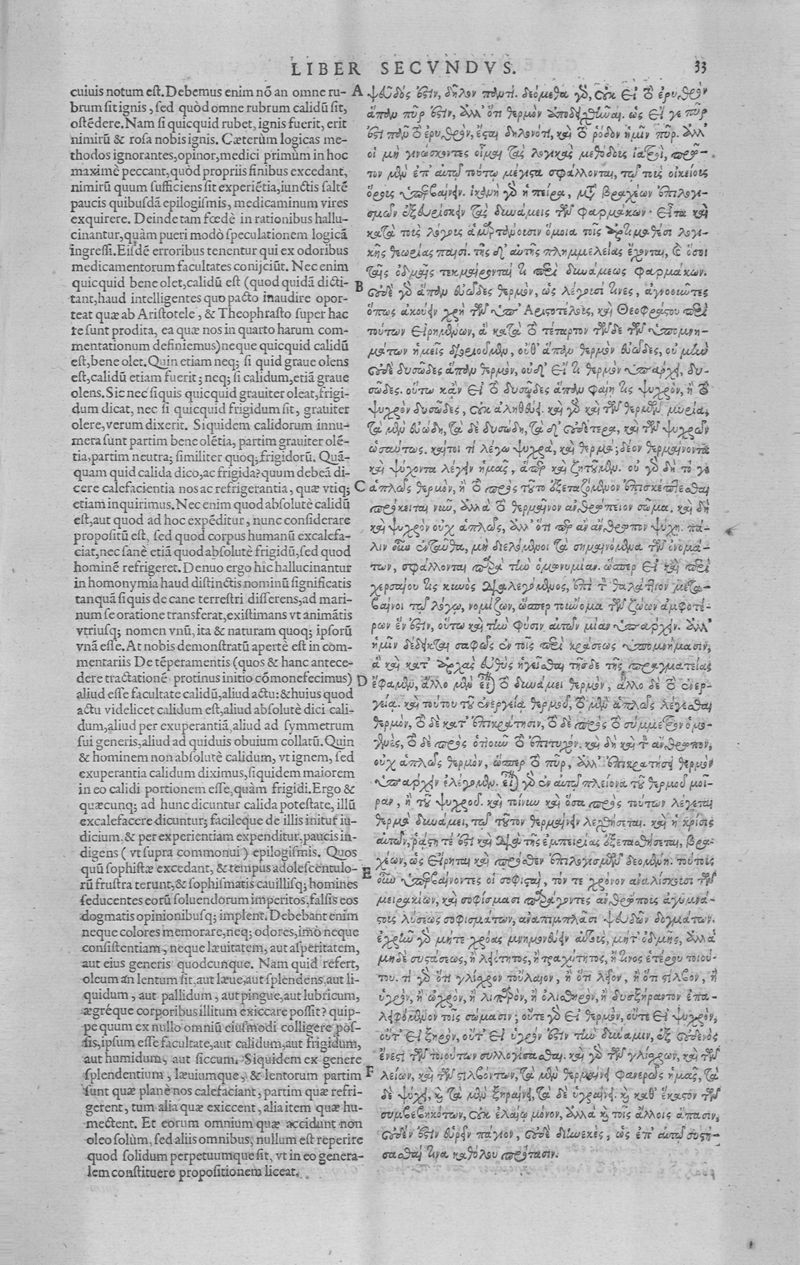 LIBER SECVNDVS. 33
cuiuis notum est. Debemus enim nõ an omne ru-
brum sit ignis, sed quòd omne rubrum calidũ sit,
ostẽdere. Nam si quicquid rubet, ignis fuerit, erit
nimirũ & rosa nobis ignis. Cæterùm logicas me-
thodos ignorantes, opinor, medici primùm in hoc
maximè peccant, quòd propriis finibus excedant,
nimirũ quum sufficiens sit experiẽtia, iunctis saltẽ
paucis quibusdã epilogismis, medicaminum vires
exquirere. Deinde tam fœdè in rationibus hallu-
cinantur, quàm pueri modò speculationem logicã
ingressi. Eisdẽ erroribus tenentur qui ex odoribus
medicamentorum facultates conijciũt. Nec enim
quicquid bene olet, calidũ est (quod quidã dicti-
tant, haud intelligentes quo pacto inaudire opor-
teat quæ ab Aristotele, & Theophrasto super hac
re sunt prodita, ea quæ nos in quarto harum com-
mentationum definiemus) neque quicquid calidũ
est, bene olet. Quin etiam neq; si quid graue olens
est, calidũ etiam fuerit; neq; si calidum, etiã graue
olens. Sic nec si quis quicquid grauiter oleat, frigi-
dum dicat, nec si quicquid frigidum sit, grauiter
olere, verum dixerit. Siquidem calidorum innu-
mera sunt partim bene olẽtia, partim grauiter olẽ-
tia, partim neutra; similiter quoq; frigidorũ. Quã-
quam quid calida dico, ac frigida? quum debeã di-
cere calefacientia nos ac refrigerantia, quæ vtiq;
etiam inquirimus. Nec enim quod absolutè calidũ
est, aut quod ad hoc expẽditur, nunc considerare
propositũ est, sed quod corpus humanũ excalefa-
ciat, nec sanè etiã quod absolutè frigidũ, sed quod
hominẽ refrigeret. Denuo ergo hîc hallucinantur
in homonymia haud distinctis nominũ significatis
tanquã si quis de cane terrestri disserens, ad mari-
num se oratione transferat, existimans vt animãtis
vtriusq; nomen vnũ, ita & naturam quoq; ipsorũ
vnã esse. At nobis demonstratũ apertè est in com-
mentariis De tẽperamentis (quos & hanc antece-
dere tractationẽ protinus initio cõmonefecimus)
aliud esse facultate calidũ, aliud actu: & huius quod
actu videlicet calidum est, aliud absolutè dici cali-
dum, aliud per exuperantiã, aliud ad symmetrum
sui generis, aliud ad quiduis obuium collatũ. Quin
& hominem non absolutè calidum, vt ignem, sed
exuperantia calidum diximus, siquidem maiorem
in eo calidi portionem esse, quàm frigidi. Ergo &
quæcunq; ad hunc dicuntur calida potestate, illũ
excalefacere dicuntur; facileque de illis initur iu-
dicium, & per experientiam expenditur, paucis in-
digens (vt supra commonui) epilogismis. Quos
quũ sophistæ excedant, & tempus adolescentulo-
rũ frustra terunt, & sophismatis cauillisq; homines
seducentes eorũ soluendorum imperitos, falsis eos
dogmatis opinionibusq; implent. Debebant enim
neque colores memorare, neq; odores, imò neque
consistentiam, neque læuitatem, aut asperitatem,
aut eius generis quodcunque. Nam quid refert,
oleum an lentum sit, aut læue, aut splendens, aut li-
quidum, aut pallidum, aut pingue, aut lubricum,
ægréque corporibus illitum exiccare possit? quip-
pe quum ex nullo omniũ eiusmodi colligere pos-
sis, ipsum esse facultate, aut calidum, aut frigidum,
aut humidum, aut siccum. Siquidem ex genere
splendentium, læuiumque, & lentorum partim
sunt quæ planè nos calefaciant, partim quæ refri-
gerent, tum alia quæ exiccent, alia item quæ hu-
mectent. Et eorum omnium quæ accidunt non
oleo solùm, sed aliis omnibus, nullum est reperire
quod solidum perpetuumque sit, vt in eo genera-
lem constituere propositionem liceat.
A ψεῦδός ἐστιν, δῆλον παντί. δεόμεθα γὰρ, οὐκ εἰ τὸ ἐρυθρὸν
ἅπαν πῦρ ἐστιν, ἀλλ' ὅτι θερμὸν ἀποδειχθῆναι. ὡς εἴ γε πῦρ
ἐστὶ πᾶν τὸ ἐρυθρὸν, ἔσται δηλονότι, καὶ τὸ ῥόδον ἡμῖν πῦρ. ἀλλ'
οἱ μὴ γινώσκοντες οἶμαι τὰς λογικὰς μεθόδους ἰατροὶ, πρῶ-
τον μὲν ἐπ' αὐτῷ τούτῳ μέγιστα σφάλλονται, τῷ τοὺς οἰκείους
ὅρους ὑπερβαίνειν. ἱκανὴ γὰρ ἡ πεῖρα, μετὰ βραχέων ἐπιλογι-
σμῶν ἐξευρίσκειν τὰς δυνάμεις τῶν φαρμάκων. εἶτα καὶ
κατὰ τοὺς λόγους ἁμαρτάνουσιν ὅμοια τοῖς ἄρτι μαθεῖσι λογι-
κῆς θεωρίας παισί. τῆς δ' αὐτῆς πλημμελείας ἔχονται, καὶ ὅσοι
ταῖς ὀδμαῖς τεκμαίρονται τι περὶ δυνάμεως φαρμάκων.
B οὐδὲ γὰρ ἅπαν εὐῶδες θερμὸν, ὡς λέγουσί τινες, ἀγνοοῦντες
ὅπως ἀκούειν χρὴ τῶν ὑπ' Ἀριστοτέλους, καὶ Θεοφράστου περὶ
τούτων εἰρημένων, ἃ κατὰ τὸ τέταρτον τῶνδε τῶν ὑπομνη-
μάτων ἡμεῖς διοριοῦμεν, οὔθ' ἅπαν θερμὸν εὐῶδες, οὐ μὴν
οὐδὲ δυσῶδες ἅπαν θερμὸν, οὐδ' εἴ τι θερμὸν ὑπάρχει, δυ-
σῶδες. οὕτω κἂν εἰ τὸ δυσῶδες ἅπαν φαίη τις ψυχρὸν, ἢ τὸ
ψυχρὸν δυσῶδες, οὐκ ἀληθεύει. καὶ γὰρ καὶ τῶν θερμῶν μυρία,
τὰ μὲν εὐώδη, τὰ δὲ δυσώδη, τὰ δ' οὐδέτερα, καὶ τῶν ψυχρῶν
ὡσαύτως. καίτοι τί λέγω ψυχρὰ, καὶ θερμά; δέον θερμαίνοντα
καὶ ψύχοντα λέγειν ἡμᾶς, ἅπερ καὶ ζητοῦμεν. οὐ γὰρ δὴ τό γε
C ἁπλῶς θερμὸν, ἢ τὸ πρὸς τοῦτο ἐξεταζόμενον ἐπισκέπτεσθαι
πρόκειται νῦν, ἀλλὰ τὸ θερμαῖνον ἀνθρώπειον σῶμα, καὶ δὴ
καὶ ψυχρὸν οὐχ ἁπλῶς, ἀλλ' ὅτι περ ἂν ἄνθρωπον ψύχῃ. πά-
λιν οὖν ἐνταῦθα, μὴ διελόμενοι τὰ σημαινόμενα τῶν ὀνομά-
των, σφάλλονται παρὰ τὴν ὁμωνυμίαν. ὥσπερ εἰ καὶ περὶ
χερσαίου τις κυνὸς διαλεγόμενος, ἐπὶ τὸν θαλάττιον μετα-
βαίνοι τῷ λόγῳ, νομίζων, ὥσπερ τοὔνομα τῶν ζώων ἀμφοτέ-
ρων ἕν ἐστιν, οὕτω καὶ τὴν φύσιν αὐτῶν μίαν ὑπάρχειν. ἀλλ'
ἡμῖν δέδεικται σαφῶς ἐν τοῖς περὶ κράσεως ὑπομνήμασιν,
ἃ καὶ κατ' ἀρχὰς εὐθὺς ἡγεῖσθαι τῆσδε τῆς πραγματείας
D ἔφαμεν, ἄλλο μὲν εἶναι τὸ δυνάμει θερμὸν, ἄλλο δὲ τὸ ἐνερ-
γείᾳ. καὶ τούτου τοῦ ἐνεργείᾳ θερμοῦ, τὸ μὲν ἁπλῶς λέγεσθαι
θερμὸν, τὸ δὲ κατ' ἐπικράτησιν, τὸ δὲ πρὸς τὸ σύμμετρον ὁμο-
γενὲς, τὸ δὲ πρὸς ὁτιοῦν τὸ ἐπιτυχόν. καὶ δὴ καὶ τὸν ἄνθρωπον,
οὐχ ἁπλῶς θερμὸν, ὥσπερ τὸ πῦρ, ἀλλ' ἐπικρατήσει θερμὸν
ὑπάρχειν ἐλέγομεν. εἶναι γὰρ ἐν αὐτῷ πλείονα τοῦ θερμοῦ μοῖ-
ραν, ἢ τοῦ ψυχροῦ. καὶ τοίνυν καὶ ὅσα πρὸς τοῦτον λέγεται
θερμὰ δυνάμει, τῷ τοῦτον θερμαίνειν λεχθήσεται. καὶ ἡ κρίσις
αὐτῶν, ῥᾴστη τέ ἐστι καὶ διὰ τῆς ἐμπειρίας ἐξετασθήσεται, βρα-
χέων, ὡς εἴρηται καὶ πρόσθεν ἐπιλογισμῶν δεομένη. τούτους
E οὖν ὑπερβαίνοντες οἱ σοφισταὶ, τόν τε χρόνον ἀναλίσκουσι τῶν
μειρακίων, καὶ σοφίσμασι παράγοντες ἀνθρώπους ἀγυμνά-
στους λύσεως σοφισμάτων, ἀναπιμπλᾶσι ψευδῶν δογμάτων.
ἐχρῆν γὰρ μήτε χρόας μνημονεύειν αὐτοὺς, μήτ' ὀδμῆς, ἀλλὰ
μηδὲ συστάσεως, ἢ λειότητος, ἢ τραχύτητος, ἤ τινος ἑτέρου τοιού-
του. τί γὰρ ὅτι γλίσχρον τοὔλαιον, ἢ ὅτι λεῖον, ἢ ὅτι στίλβον, ἢ
ὑγρὸν, ἢ ὠχρὸν, ἢ λιπαρὸν, ἢ ὀλισθηρὸν, ἢ δυσξήραντον ἐπα-
λειφόμενον τοῖς σώμασιν; οὔτε γὰρ εἰ θερμὸν, οὔτε εἰ ψυχρὸν,
οὔτ' εἰ ξηρὸν, οὔτ' εἰ ὑγρόν ἐστιν τὴν δύναμιν, ἐξ οὐδενὸς
ἔνεστι τῶν τοιούτων συλλογίσασθαι. καὶ γὰρ τῶν γλίσχρων, καὶ τῶν
F λείων, καὶ τῶν στιλβόντων, τὰ μὲν θερμαίνει φανερῶς ἡμᾶς, τὰ
δὲ ψύχει, καὶ τὰ μὲν ξηραίνει, τὰ δὲ ὑγραίνει. καὶ καθ' ἕκαστον τῶν
συμβεβηκότων, οὐκ ἐλαίῳ μόνον, ἀλλὰ καὶ τοῖς ἄλλοις ἅπασιν,
οὐδέν ἐστιν εὑρεῖν πάγιον, οὐδὲ διηνεκὲς, ὡς ἐπ' αὐτῷ συστή-
σασθαί τινα καθόλου πρότασιν.